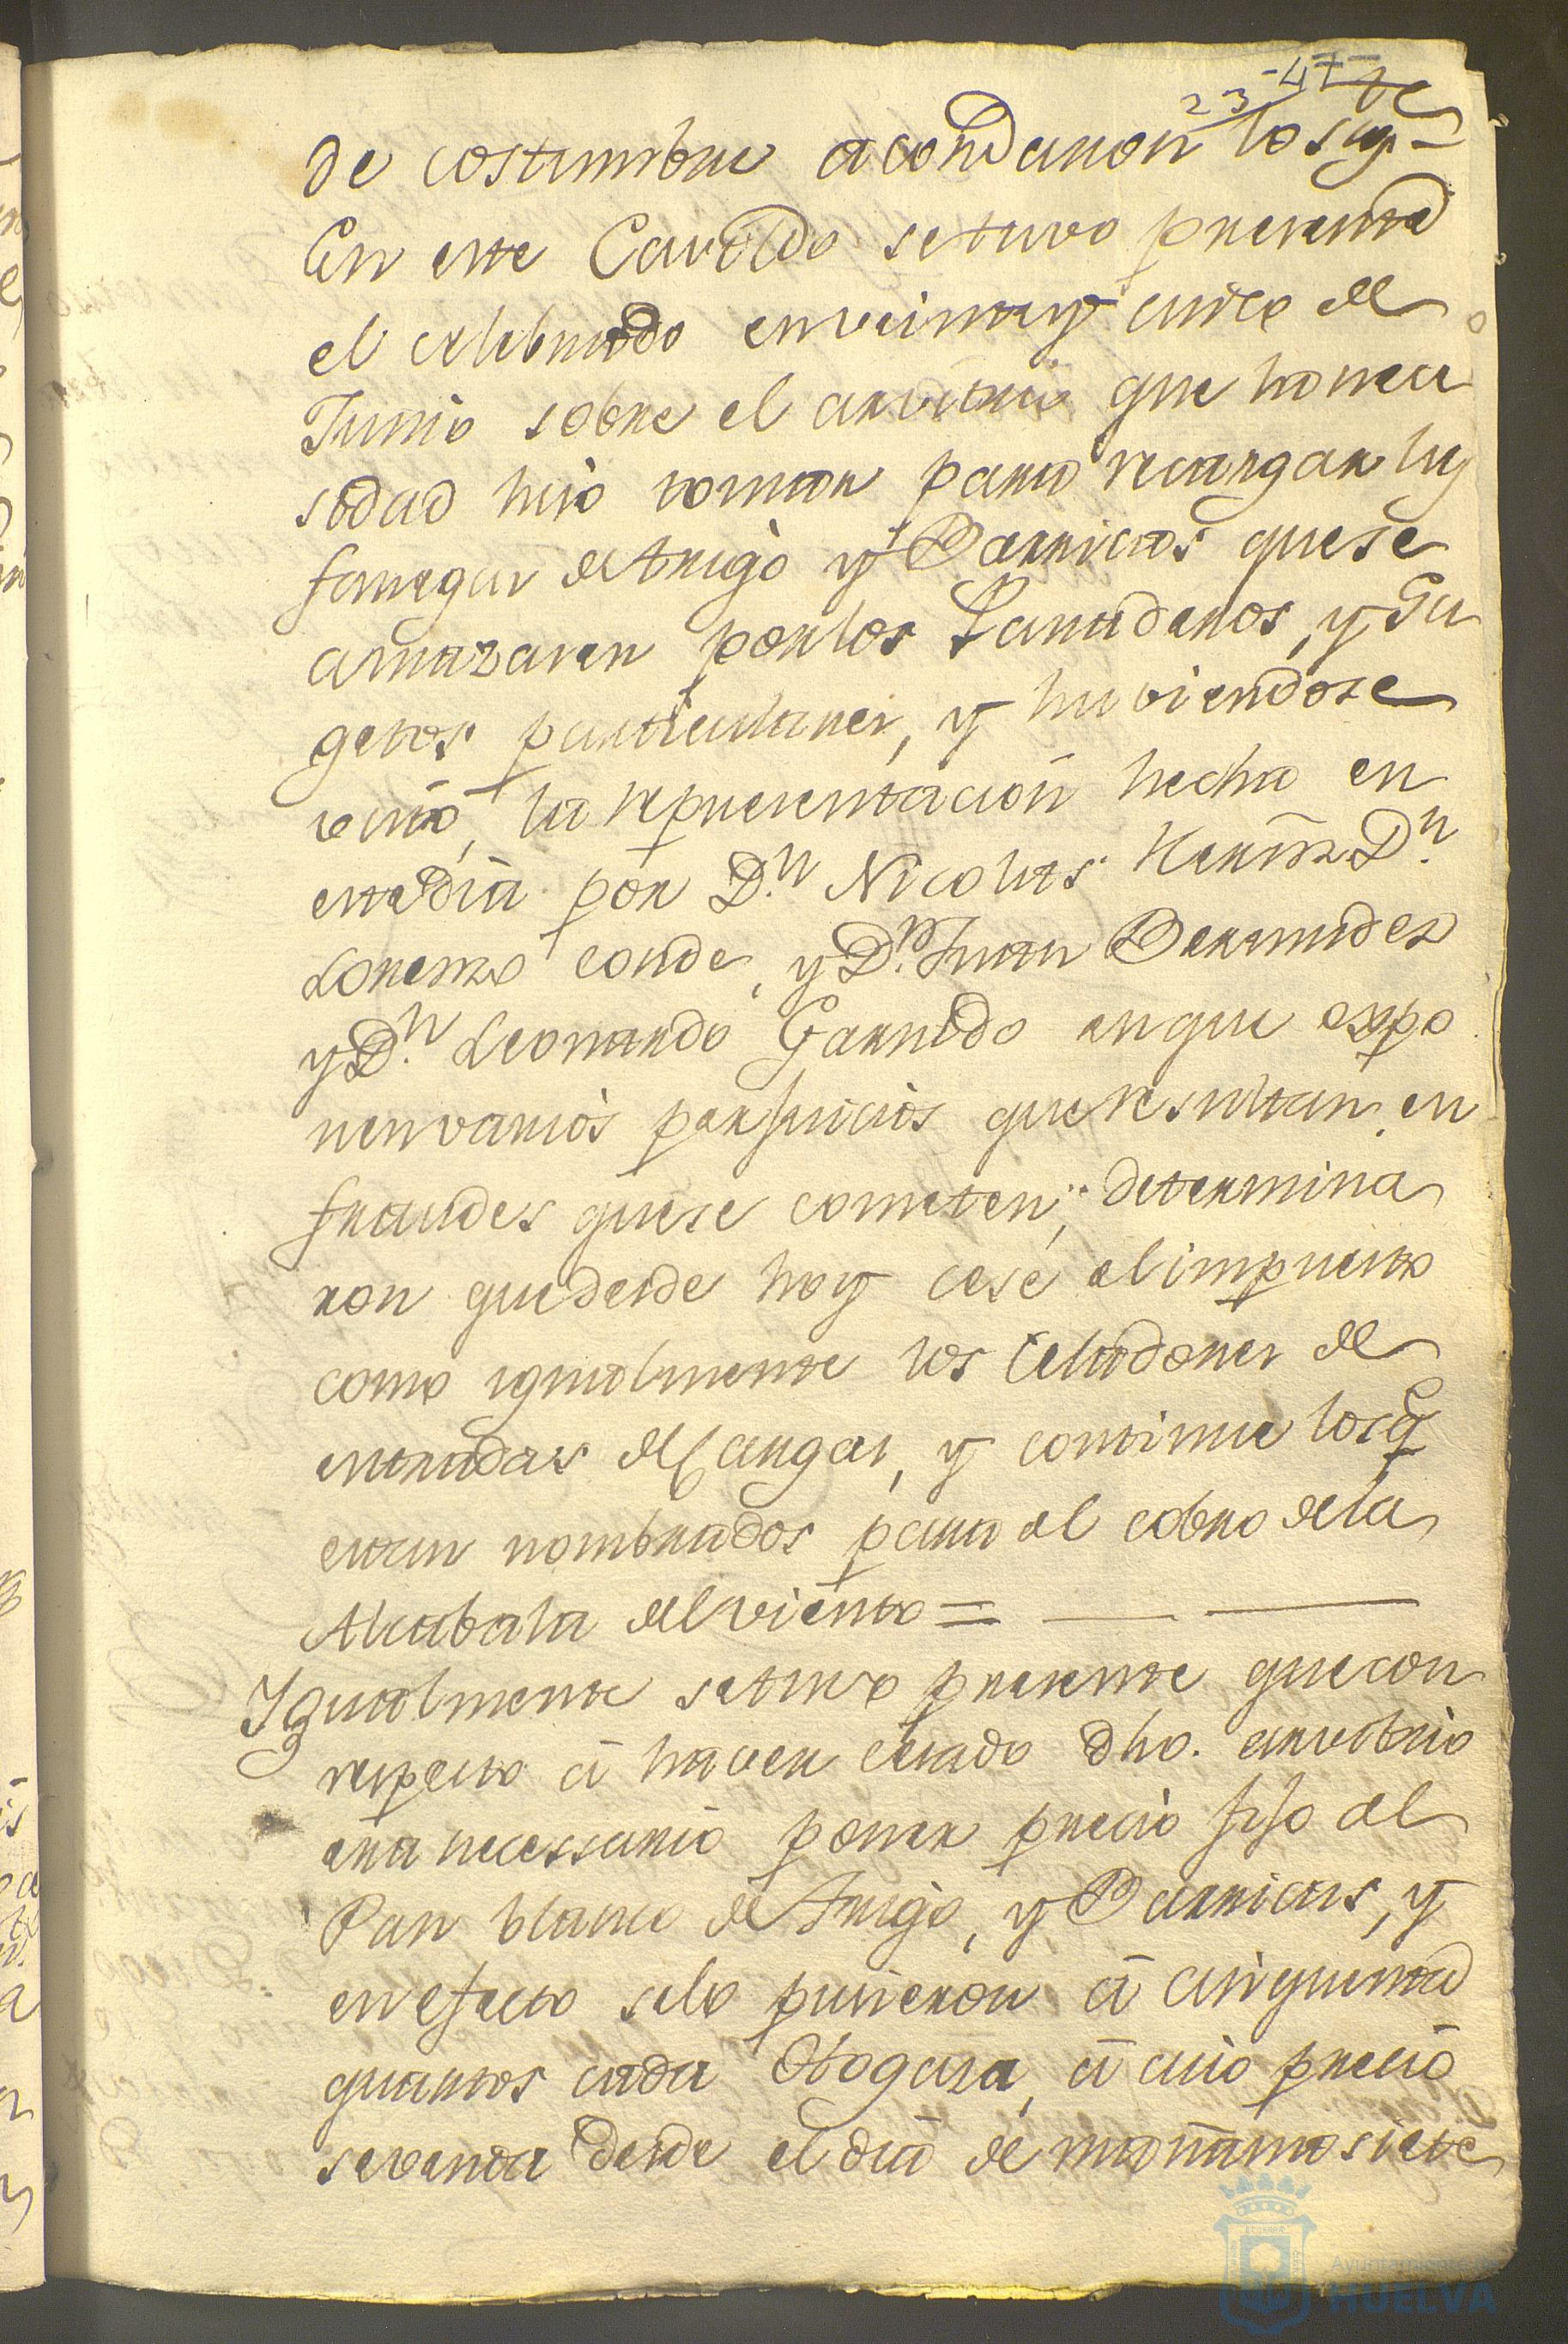 23 -47-
de costumbre acordaron lo sigte
En este Cavildo se tuvo presente
el celebrado en veinte y cinco de
Junio sobre el arvitrio que la nece
sidad hiso tomar para recargar las
fanegas de trigo y Harricas que se
amazaren por los Panaderos, y Su
getos particulares, y huviendose
visto, la representacion hecha en
este dia por Dn. Nicolas Hernz Dn.
Lorenzo conde, y Dn. Juan Bermudez
y Dn. Leonardo Garrido en que expo
nen varios perjuicios que resultan, en
fraudes que se cometen; determina
ron que desde hoy cese el impuesto
como igualmente los Celadores de
entradas de Cargas, y continue los q
estan nombrados para el cobro de la
Alcabala del viento =
Igualmente se tuvo presente que con
respecto à haver cesado dho. arvitrio
era necessario poner precio fijo al
Pan blanco de trigo, y Barricas, y
en efecto se lo pusieron à cinquenta
quartos cada Hogaza, à cuio precio
se venda desde el dia de mañana siete
Ayuntamiento de
HUELVA